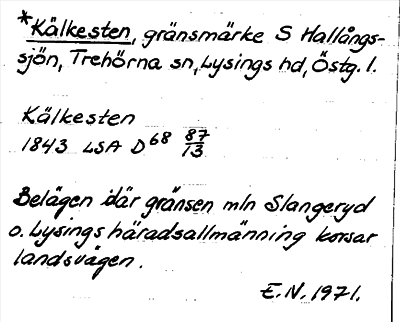 *Kälkesten, gränsmärke S Hallångs-
sjön, Trehörna sn, Lysings hd, Östg. l.
Kälkesten
1843 LSA D68 87/13
Belägen där gränsen mln Slangeryd
o. Lysings häradsallmänning korsar
landsvägen.
E.N. 1971.